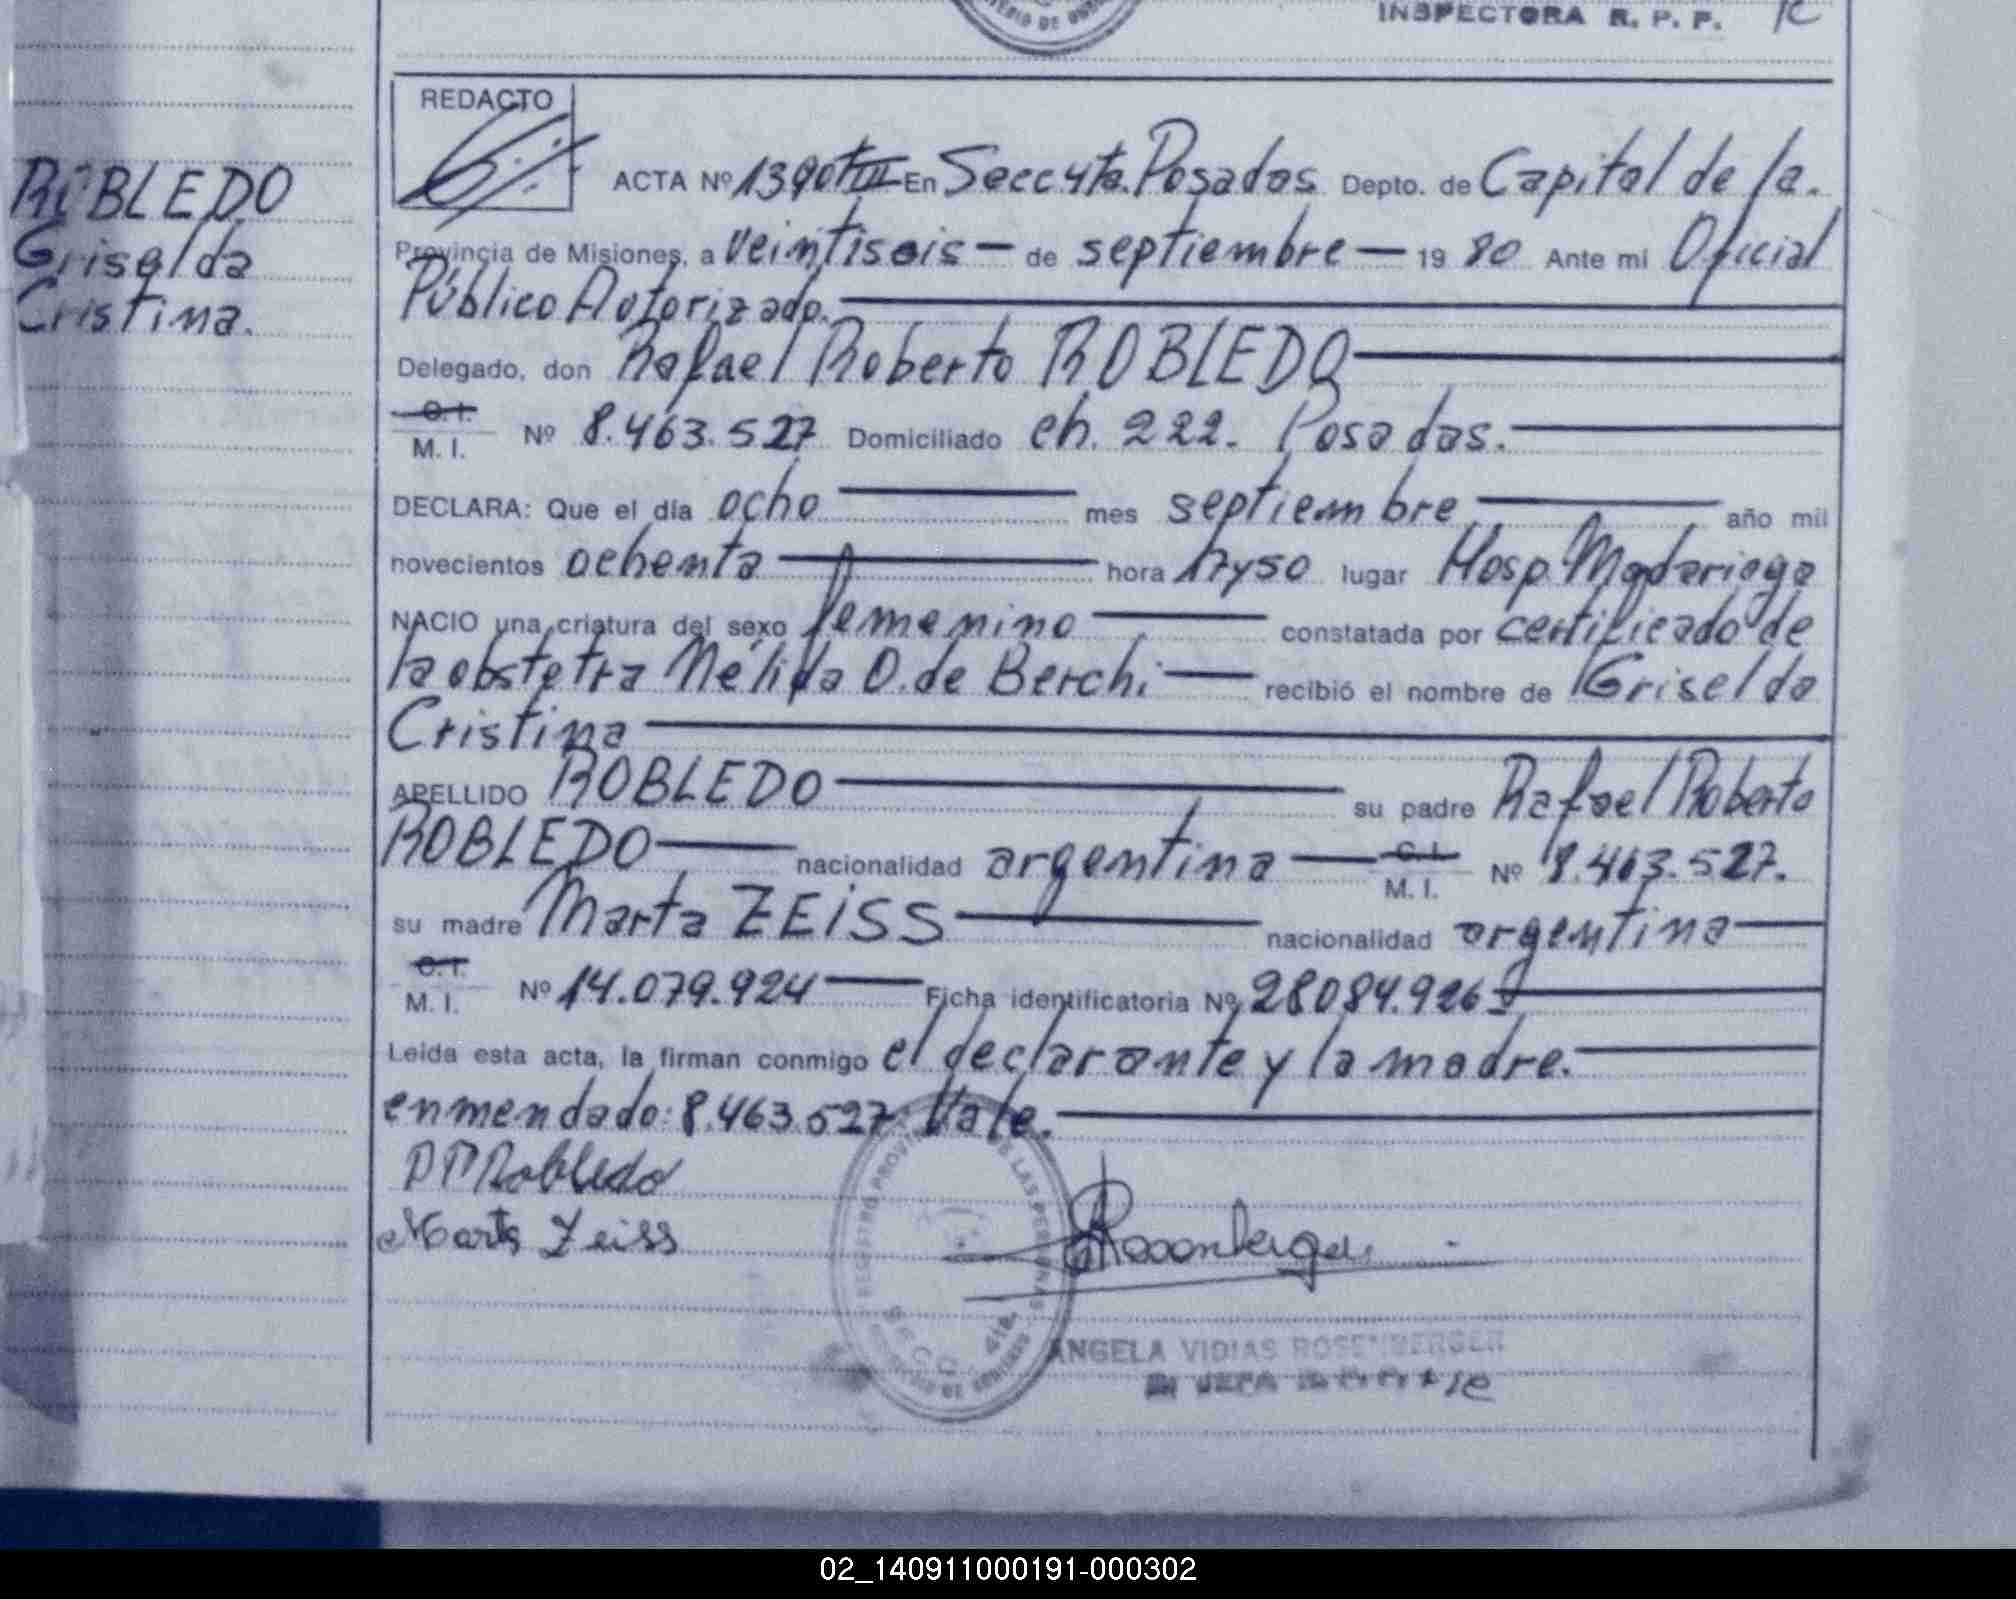 INSPECTORA R. P. P.
REDACTO
ROBLEDO
Griselda
Cristina.
ACTA Nº 1390 tº III En Secc 4ta. Posadas Depto. de Capital de la.
Provincia de Misiones, a veintiseis — de septiembre — 19 80 Ante mi Oficial
Público Autorizado.
Delegado, don Rafael Roberto ROBLEDO
C. I.
M. I. Nº 8.463.527 Domiciliado ch. 222. Posadas.
DECLARA: Que el día ocho mes septiembre año mil
novecientos ochenta hora 17y50 lugar Hosp. Madariaga
NACIO una criatura del sexo femenino constatada por certificado de
la obstetra Nélida O. de Berchi recibió el nombre de Griselda
Cristina
APELLIDO ROBLEDO su padre Rafael Roberto
ROBLEDO nacionalidad argentina C. I. M. I. Nº 8.463.527.
su madre Marta ZEISS nacionalidad argentina
C. I.
M. I. Nº 14.079.924 Ficha identificatoria Nº 28084.926
Leída esta acta, la firman conmigo el declarante y la madre.
enmendado: 8.463.527 Vale.
Robledo
Marta Zeiss
Rosenberger
REGISTRO PROVINCIAL DE LAS PERSONAS
SECC. 4ta.
ANGELA VIDIAS ROSENBERGER
02_140911000191-000302